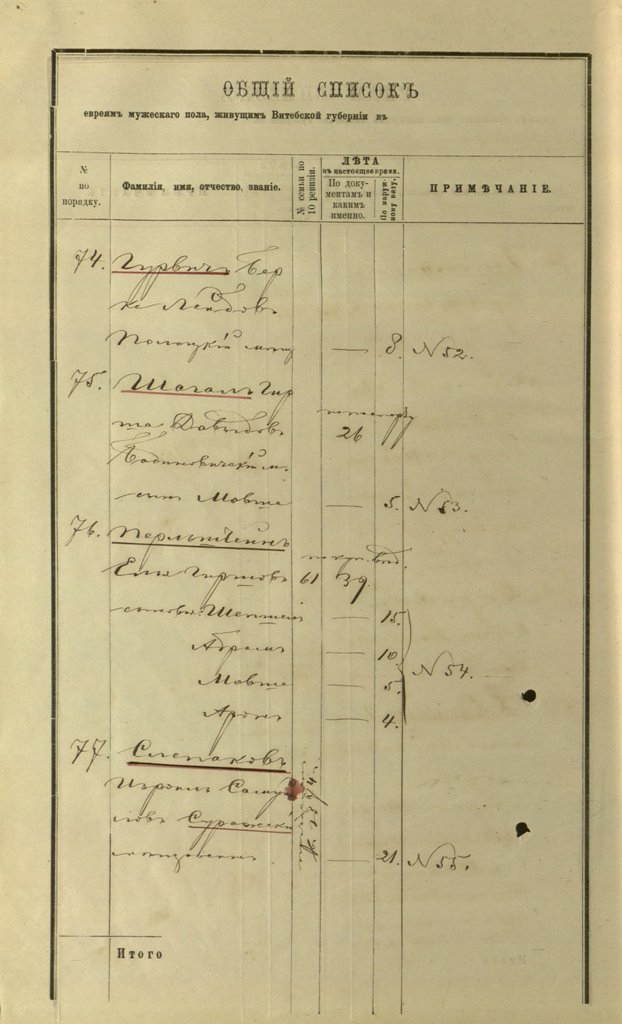 ОБЩІЙ СПИСОКЪ
евреямъ мужескаго пола, живущимъ Витебской губерніи въ
№ по порядку.
Фамилія, имя, отчество, званіе.
№ семьи по 10 ревизіи.
ЛѢТА
въ настоящее время.
По документамъ и какимъ именно.
По наружному виду.
ПРИМѢЧАНІЕ.
74. Гурвичъ Бер
ка Лейбовъ
Полоцкій мѣщ — 8. №52.
75. Шагалъ Гир
ша Давыдовъ 26
Бабиновичскій м.
сынъ Мовша — 5. №53.
76. Перльштейнъ
Елья Гиршовъ 61 39
сыновья: Шепшель — 15.
Абрамъ — 10.
№54.
Мовша — 5.
Аронъ — 4.
77. Слепаковъ
Израиль Самуй
ловъ Суражскій
— 21. №55.
Итого